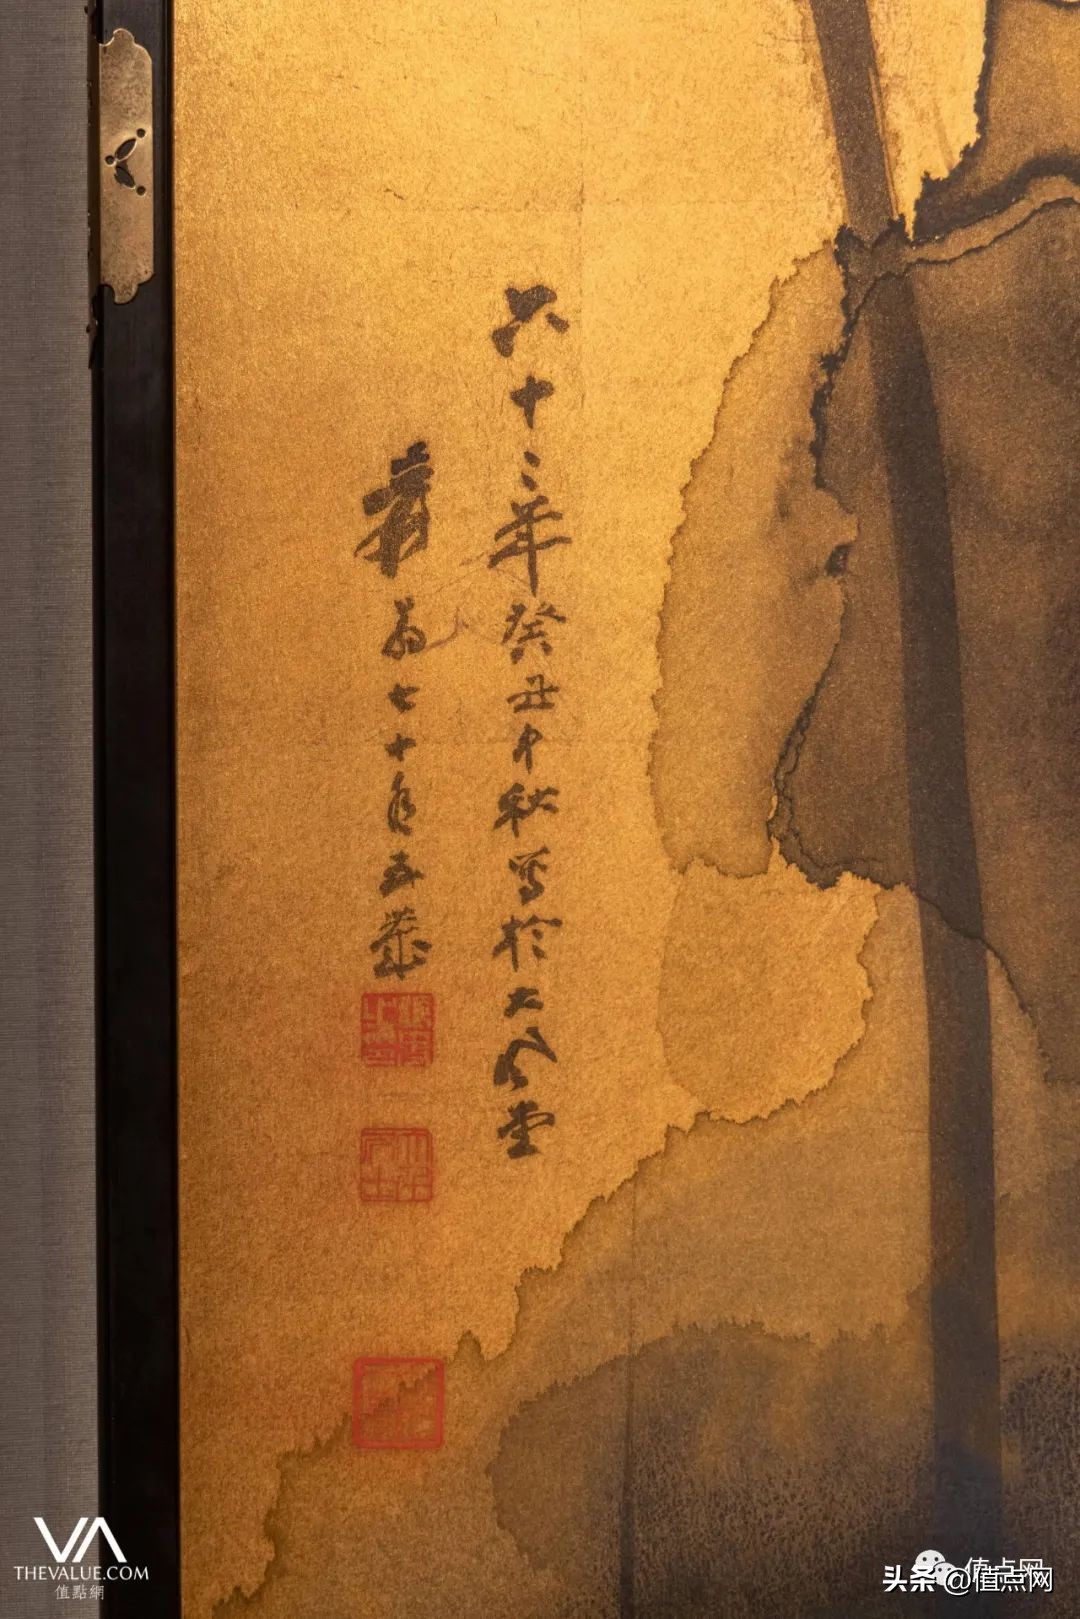 六十二年癸丑中秋寫於大風堂
爰翁七十有五歲
THEVALUE.COM
值點網
值点网
头条 @值点网